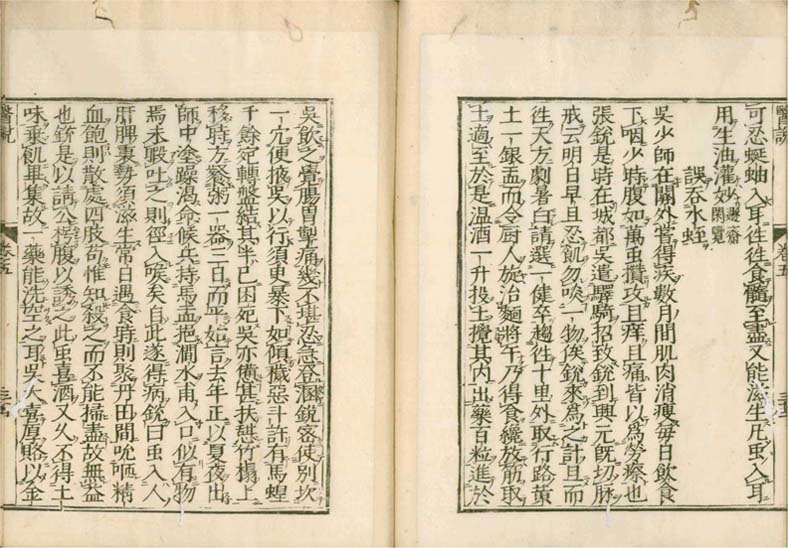 醫說 卷五
可忍蜒蚰入耳徃徃食髓至盡又能滋生凡虫入耳
用生油灌妙遯齋閑覽
誤吞水蛭
吳少師在關外嘗得疾數月間肌肉消瘦每日飲食
下咽少時腹如萬虫攢攻且痒且痛皆以爲勞瘵也
張銳是時在城都吳遣驛騎招致銳到興元旣切脉
戒云明日早且忍飢勿啖一物俟銳來爲之計旦而
徃天方劇暑白請選一健卒趨徃十里外取行路黃
土一銀盂而令厨人旋治麵將午乃得食纔放筯取
土適至於是温酒一升投土攪其内出藥百粒進於
吳飲之覺腸胃掣痛幾不堪忍急登溷銳密使別坎
一穴便掖吳以行須臾暴下如傾穢惡斗許有馬蝗
千餘宛轉盤結其半已困死吳亦憊甚扶憩竹榻上
移時方飡粥一器三日而平始言去年正以夏夜出
師中塗躁渴命候兵持馬盂挹澗水甫入口似有物
焉未暇吐之則徑入喉矣自此遂得病銳曰虫入人
肝脾裏勢須滋生常日遇食時則聚丹田間吮咂精
血飽則散處四肢苟惟知殺之而不能掃盡故無益
也銳是以請公枵腹以誘之此虫喜酒又久不得土
味乘飢畢集故一藥能洗空之耳吳大喜厚賂以金
醫說 卷五